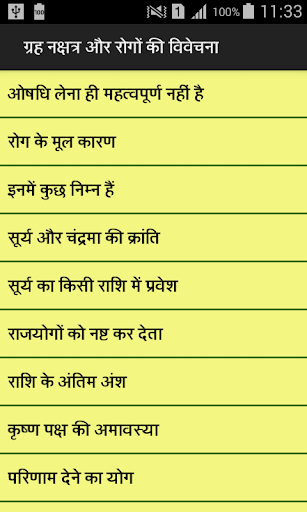 100% 11:33
ग्रह नक्षत्र और रोगों की विवेचना
ओषधि लेना ही महत्वपूर्ण नहीं है
रोग के मूल कारण
इनमें कुछ निम्न हैं
सूर्य और चंद्रमा की क्रांति
सूर्य का किसी राशि में प्रवेश
राजयोगों को नष्ट कर देता
राशि के अंतिम अंश
कृष्ण पक्ष की अमावस्या
परिणाम देने का योग